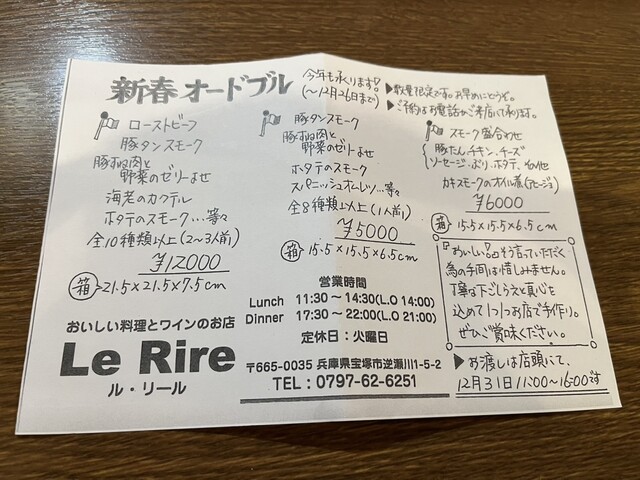 新春オードブル
今年も承ります!
(〜12月26日まで)
▶数量限定です。お早めにどうぞ。
▶ご予約はお電話かご来店にて承ります。
ローストビーフ
豚タンスモーク
豚すね肉と
野菜のゼリーよせ
海老のカクテル
ホタテのスモーク…等々
全10種類以上(2〜3人前)
¥12000
箱 21.5×21.5×7.5cm
豚タンスモーク
豚すね肉と
野菜のゼリーよせ
ホタテのスモーク
スパニッシュオムレツ…等々
全8種類以上(1人前)
¥5000
箱 15.5×15.5×6.5cm
スモーク盛合わせ
豚たん、チキン、チーズ
ソーセージ、ぶり、ホタテ、その他
カキスモークのオイル煮(アヒージョ)
¥6000
箱 15.5×15.5×6.5cm
『おいしい』そう言っていただく
為の手間は惜しみません。
丁寧な下ごしらえと真心を
込めて1つ1つお店で手作り。
ぜひご賞味ください。
▶お渡しは店頭にて、
12月31日11:00〜16:00です
営業時間
Lunch 11:30~14:30(L.O 14:00)
Dinner 17:30~22:00(L.O 21:00)
定休日:火曜日
おいしい料理とワインのお店
Le Rire
ル・リール
〒665-0035 兵庫県宝塚市逆瀬川1-5-2
TEL:0797-62-6251